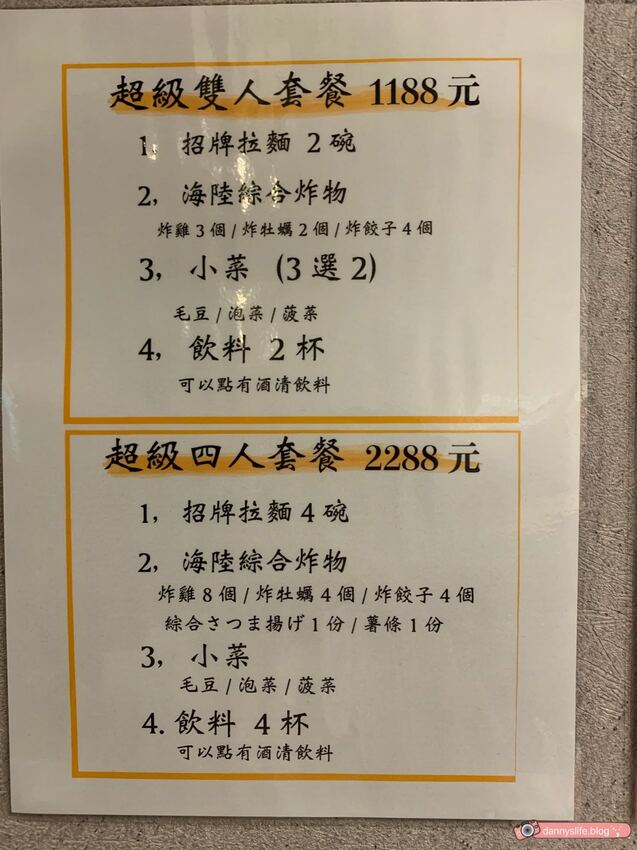 超級雙人套餐 1188 元
1, 招牌拉麵 2 碗
2, 海陸綜合炸物
炸雞 3 個 / 炸牡蠣 2 個 / 炸餃子 4 個
3, 小菜 (3 選 2)
毛豆 / 泡菜 / 菠菜
4, 飲料 2 杯
可以點有酒清飲料
超級四人套餐 2288 元
1, 招牌拉麵 4 碗
2, 海陸綜合炸物
炸雞 8 個 / 炸牡蠣 4 個 / 炸餃子 4 個
綜合さつま揚げ 1 份 / 薯條 1 份
3, 小菜
毛豆 / 泡菜 / 菠菜
4. 飲料 4 杯
可以點有酒清飲料
dannyslife.blog